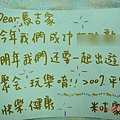 Dear 馬古家
今年我們成功
明年我們還要一起出遊
聚會、玩樂唷!!2007平
快樂健康